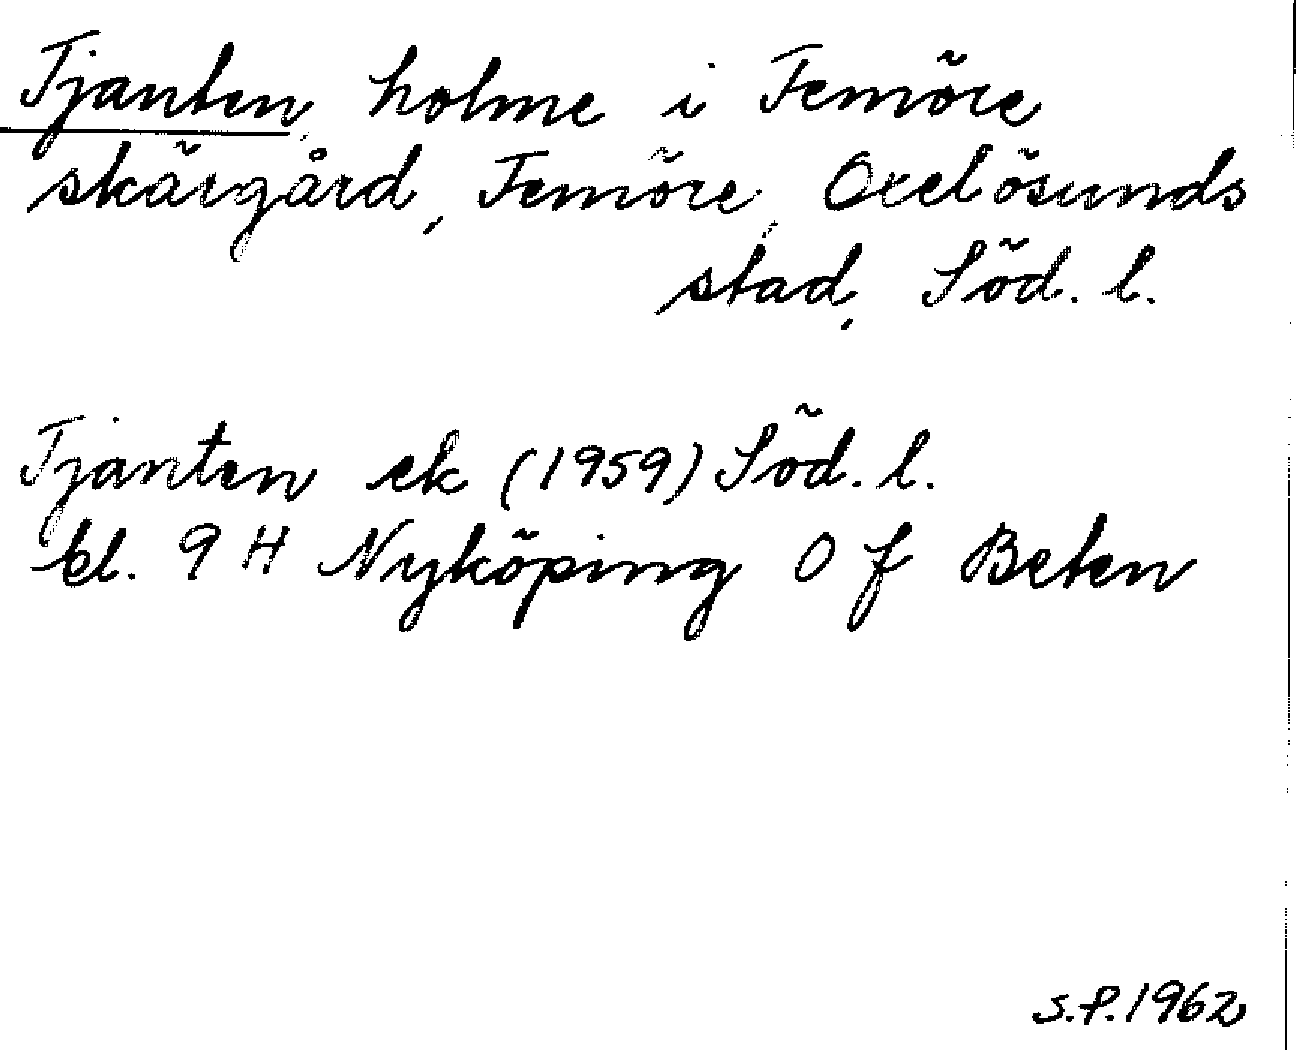 Tjanten, holme i Femöre
skärgård, Femöre, Oxelösunds
stad, Söd. l.
Tjanten ek (1959) Söd. l.
bl. 9 H Nyköping 0 f Beten
S.P. 1962